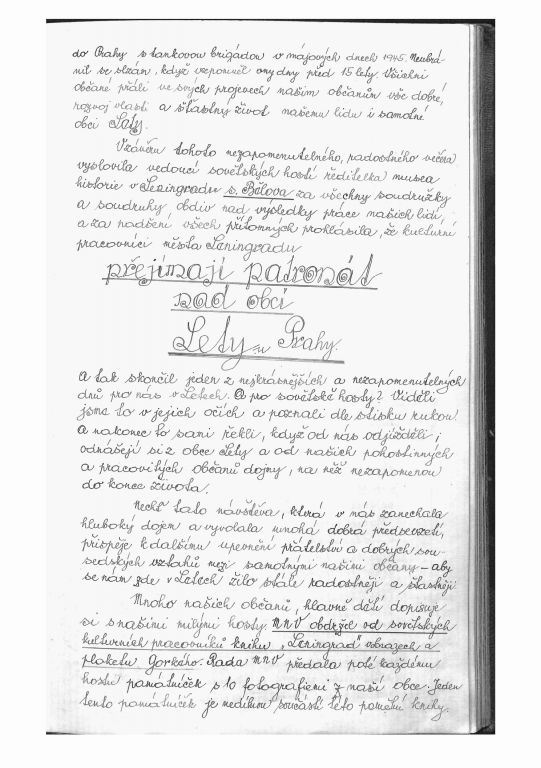 do Prahy s tankovou brigádou v májových dnech 1945. Neubrá-
nil se slzám, když vzpomněl ony dny před 15 lety. Všichni
občané přáli ve svých projevech našim občanům vše dobré,
rozvoj vlasti a šťastný život našemu lidu i samotné
obci Lety.
V závěru tohoto nezapomenutelného, radostného večera
vyslovila vedoucí sovětských hostí ředitelka musea
historie v Leningradu s. Bělova za všechny soudružky
a soudruhy obdiv nad výsledky práce našich lidí,
a za nadšení všech přítomných prohlásila, že kulturní
pracovníci města Leningradu
přejímají patronát
nad obcí
Lety u Prahy.
A tak skončil jeden z nejkrásnějších a nezapomenutelných
dnů pro nás v Letech. A pro sovětské hosty? Viděli
jsme to v jejich očích a poznali dle stisku rukou.
A nakonec to sami řekli, když od nás odjížděli,
odnášejí si z obce Lety a od našich pohostinných
a pracovitých občanů dojmy, na něž nezapomenou
do konce života.
Nechť tato návštěva, která v nás zanechala
hluboký dojem a vyvolala mnohá dobrá předsevzetí,
přispěje k dalšímu upevnění přátelství a dobrých sou-
sedských vztahů mezi samotnými našimi občany - aby
se nám zde v Letech žilo stále radostněji a šťastněji.
Mnoho našich občanů, hlavně dětí dopisuje
si s našimi milými hosty. MNV obdržel od sovětských
kulturních pracovníků knihu "Leningrad" v obrazech a
plaketu Gorkého. Rada MNV předala poté každému
hostu památníček s 10 fotografiemi z naší obce. Jeden
tento památníček je nedílnou součástí této pamětní knihy.